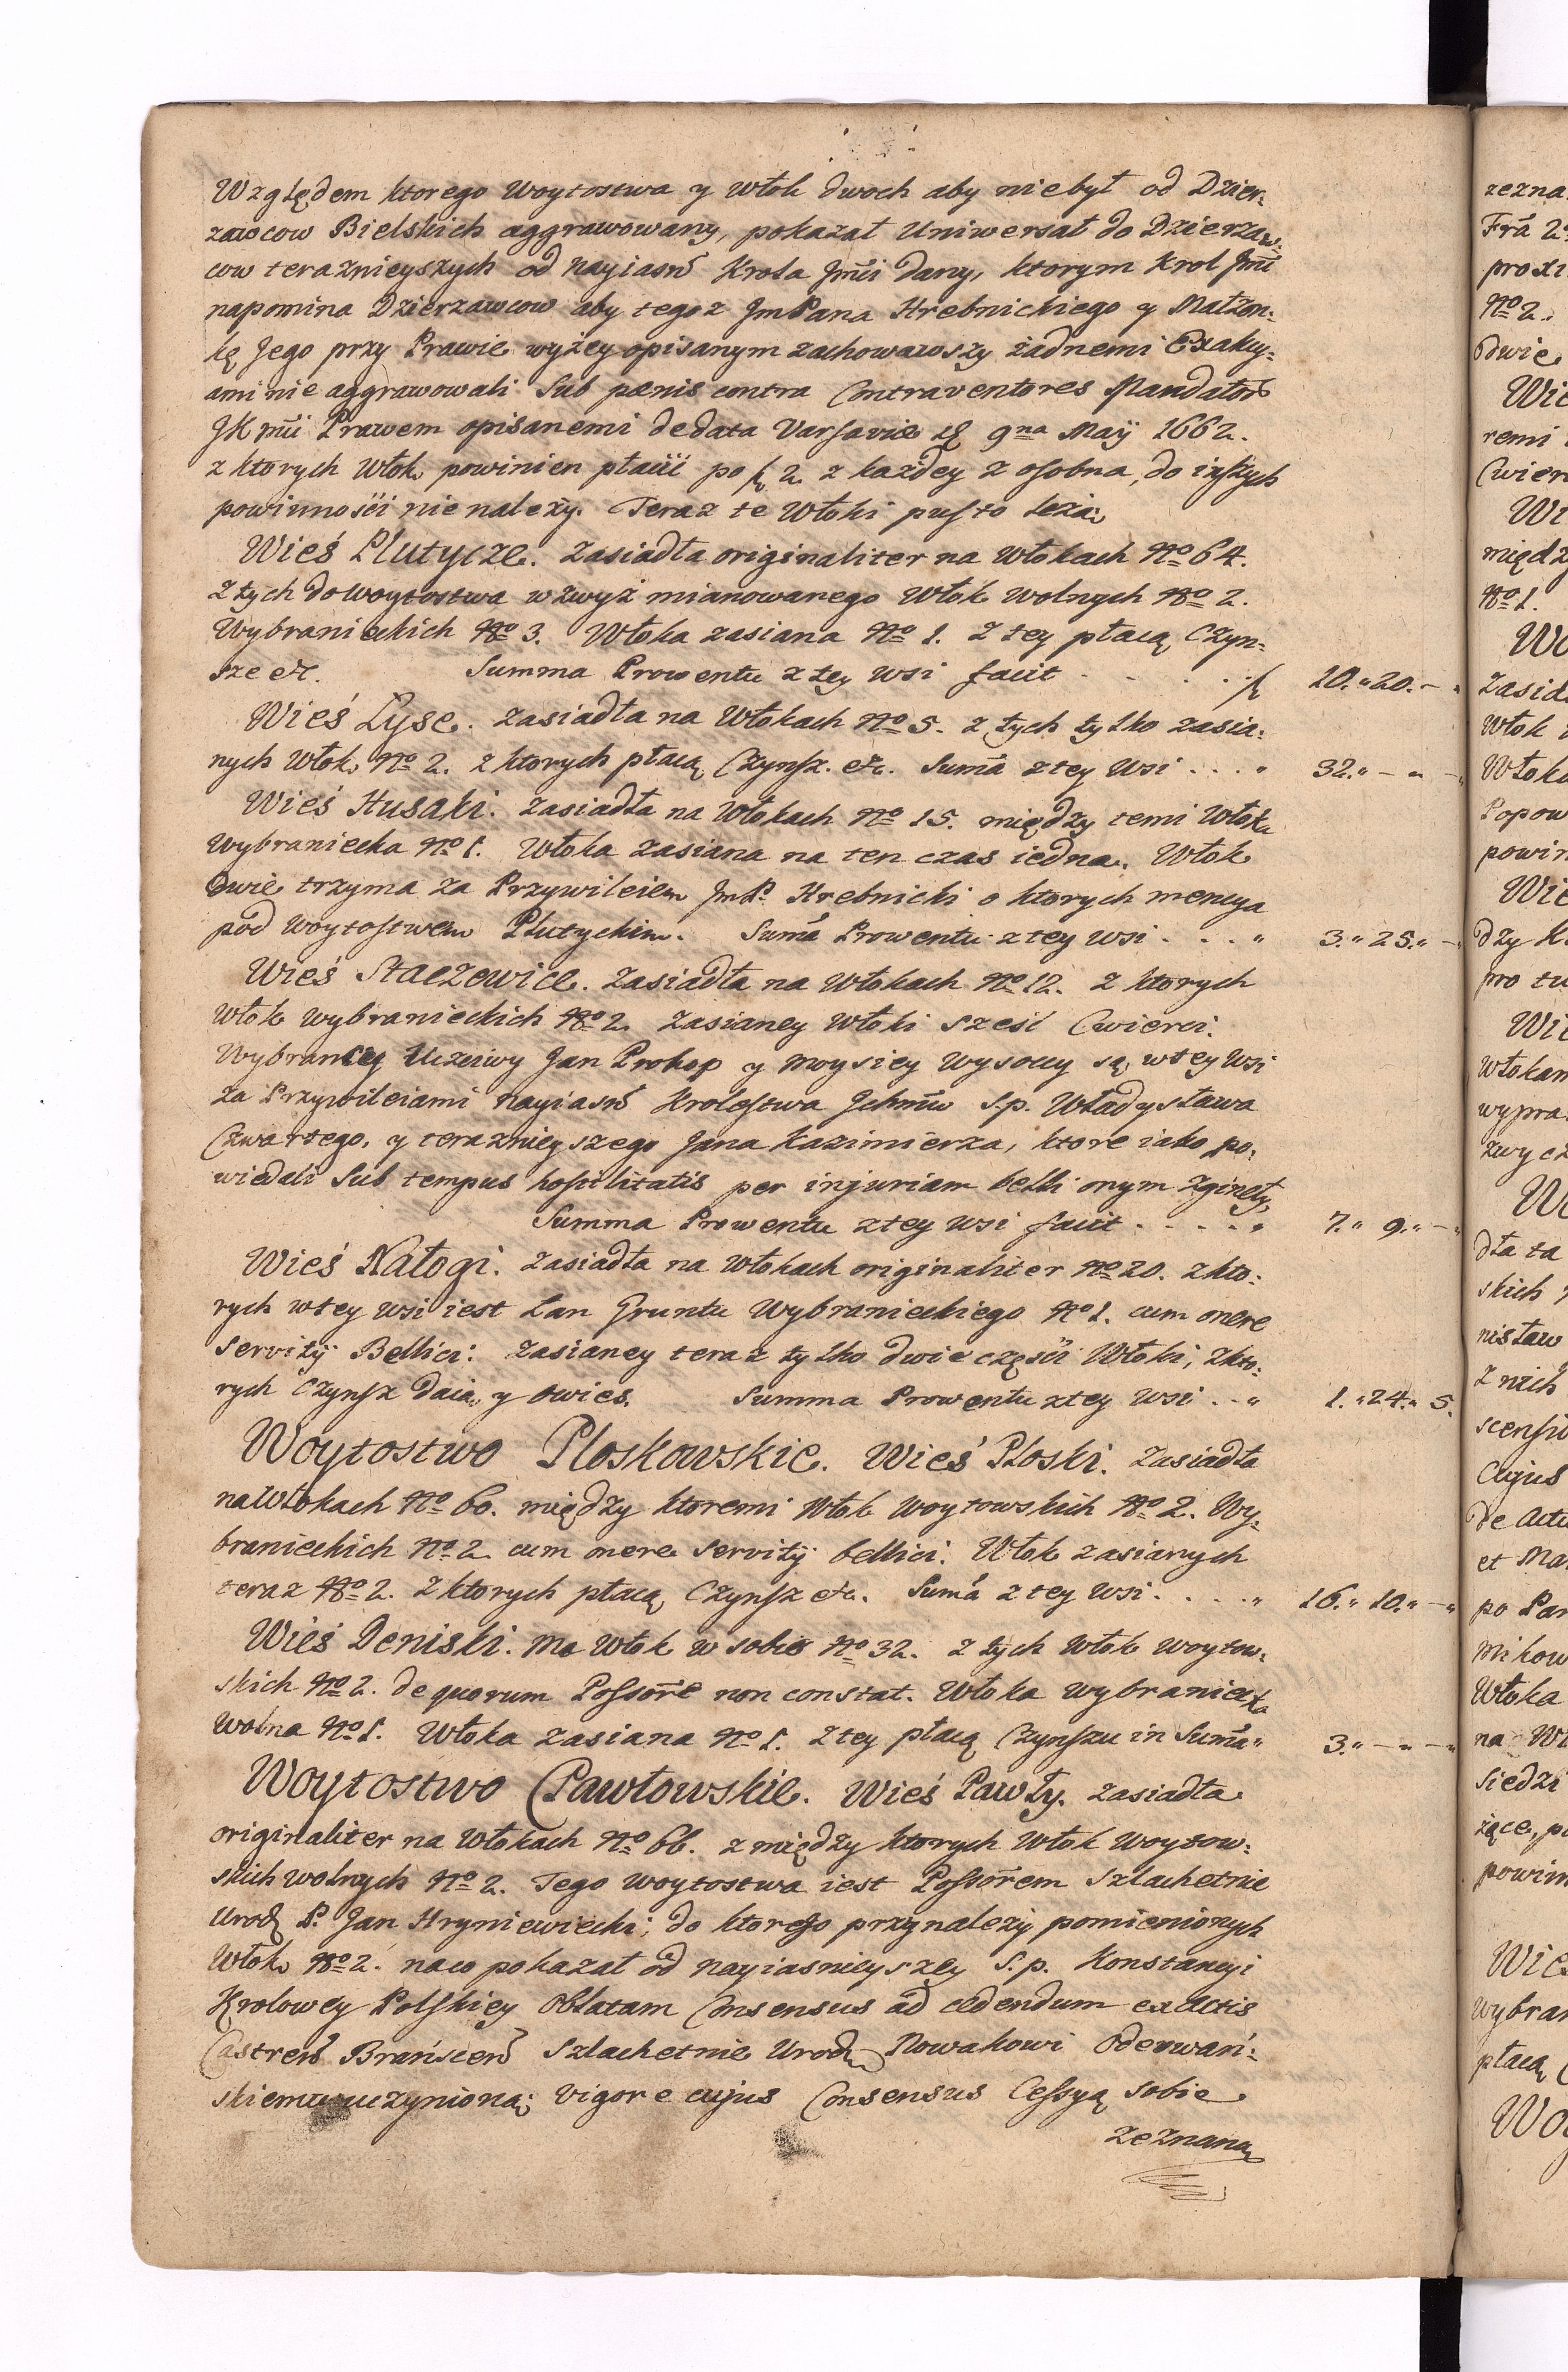 Względem ktorego Woytostwa y Włok dwoch aby niebył od Dzier:
zawcow Bielskich aggrawowany, pokazał Uniwersał do Dzierzaw:
cow teraznieyszych od Nayiasn Krola Jmci dany, ktorym Krol Jmci
napomina Dzierzawcow aby tegoz JmPana Hrebnickiego y Małzon:
kę Jego przy Prawie wyżey opisanym zachowawszy żadnemi Exakcy:
ami nie aggrawowali Sub pœnis contra Contraventores Mandator
JKmci Prawem opisanemi de data Varsavie d 9na Maÿ 1662.
z ktorych Włok powinien płacić po f 2 z każdey z osobna, do inszych
powinnośći nie należy. Teraz te Włoki pusto leżą
Wieś Plutycze. Zasiadła originaliter na Włokach No 64.
Z tych do Woytostwa wzwyż mianowanego Włok Wolnych No 2.
Wybranieckich No 3. Włoka zasiana No 1. Z tey płacą Czyn:
sze etc. Summa Prowentu z tey Wsi facit . . . . . f 10." 20." – "
Wieś Łyse. Zasiadła na Włokach No 5. z tych tylko zasia:
nych Włok No 2. z ktorych płacą Czynsz. etc. Suma z tey Wsi . . . " 32." – " –
Wieś Husaki. Zasiadła na Włokach No 15. między temi Włoka
Wybraniecka No 1. Włoka zasiana na ten czas iedna. Włok
Dwie trzyma za Przywileiem JmP. Hrebnicki o ktorych mencya
pod Woytostwem Plutyckim. Suma Prowentu z tey Wsi . . . " 3." 25." –
Wieś Staczewice. Zasiadła na Włokach No 12. z ktorych
Włok wybranieckich No 2 Zasianey Włoki sześć Cwierci.
Wybrancy Uczciwy Jan Prokop y Moysiey Wysocy są w tey Wsi
za Przywileiami Nayiasn Krolestwa Jchmw S.p. Władysława
Czwartego, y teraznieyszego Jana Kazimierza, ktore iako po:
wiedali Sub tempus hostilitatis per injuriam belli onym zginęły,
Summa Prowentu z tey Wsi facit . . . . . " 7." 9." – "
Wieś Nałogi. Zasiadła na Włokach originaliter No 20. z kto:
rych w tey Wsi iest Łan Gruntu Wybranieckiego No 1. cum onere
Servitÿ Bellici: Zasianey teraz tylko dwie częsci Włoki, z kto:
rych Czynsz daią, y Owies. Summa Prowentu z tey Wsi . . " 1. " 24. " 5.
Woytostwo Ploskowskie. Wieś Płoski. Zasiadła
na Włokach No 60. między ktoremi Włok Woytowskich No 2. Wy:
branieckich No 2 cum onere Servitÿ bellici. Włok zasianych
teraz No 2. Z ktorych płacą Czynsz etc. Suma z tey Wsi . . . . " 16." 10." – "
Wieś Deniski. Ma Włok w sobie No 32. z tych Włok Woytow:
skich No 2. de quorum Possore non constat. Włoka Wybraniecka
Wolna No 1. Włoka zasiana No 1. Z tey płacą Czynszu in Suma " 3." – " –
Woytostwo Pawłowskie. Wieś Pawły. Zasiadła
originaliter na Włokach No 66. z między ktorych Włok Woytow:
skich wolnych No 2. Tego Woytostwa iest Possorem Szlachetnie
Urodz P. Jan Hryniewiecki; do ktorego przynależy pomienionych
Włok No 2. na co pokazał od Nayiasnieyszey S.p. Konstancyi
Krolowey Polskiey Oblatam Consensus ad cedendum ex Actis
Castren Brańscen Szlachetnie Urodz Nowakowi Oderwań:
skiemu uczynioną; vigore cujus Consensus Cessyą sobie
zeznaną